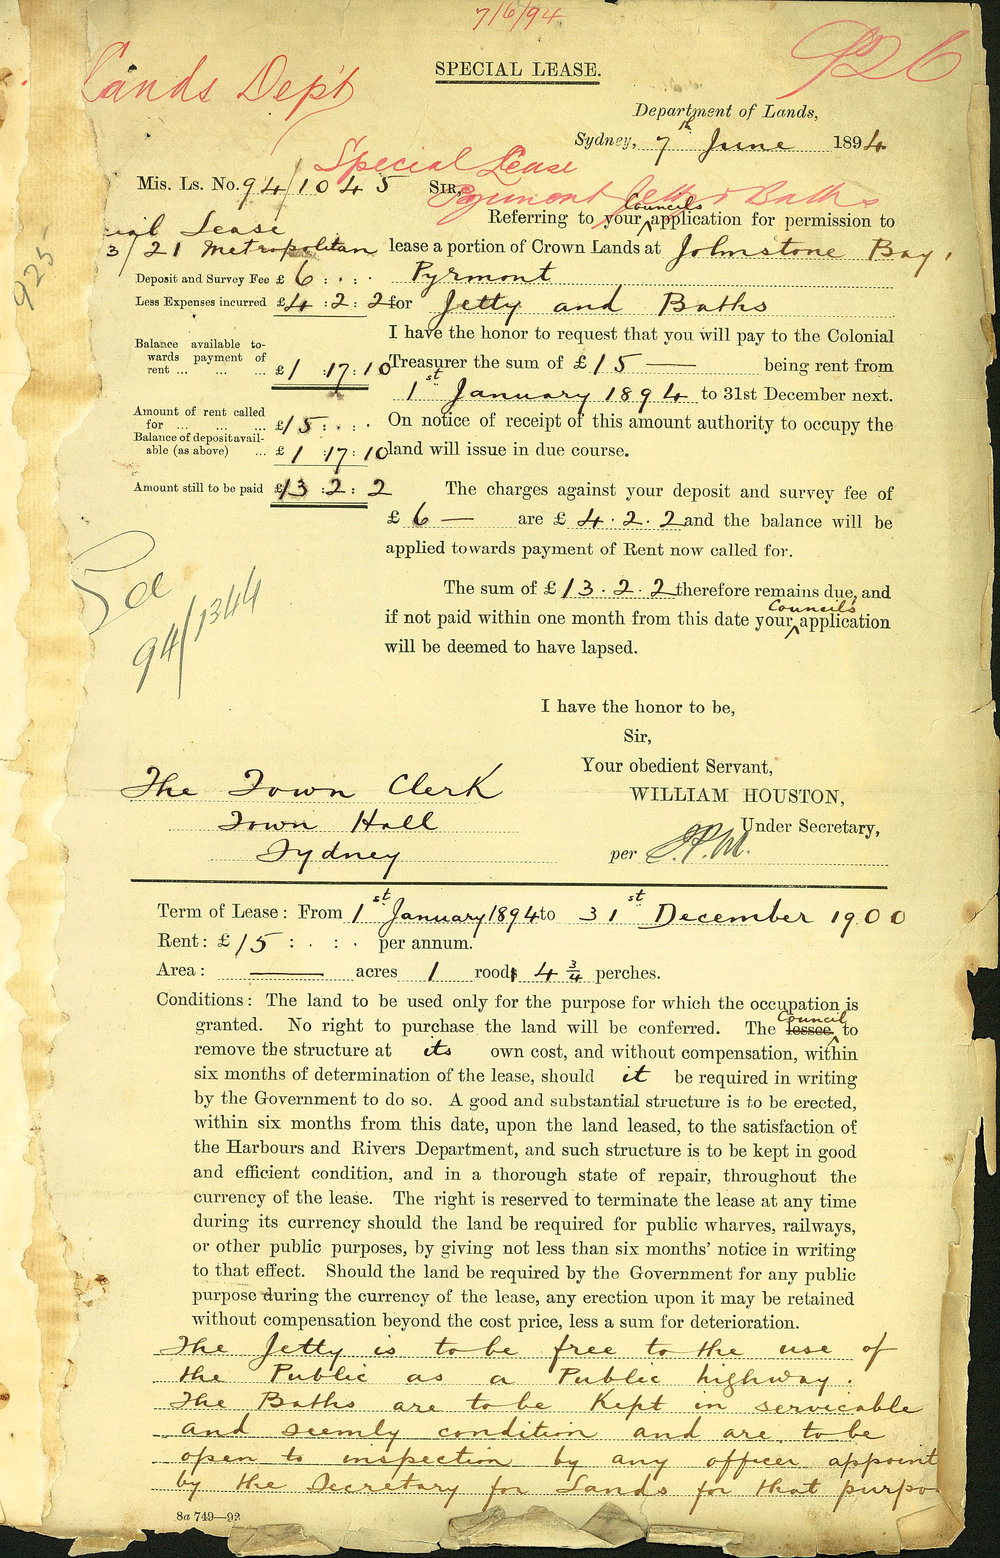 7/6/94
926
Lands Dep't
SPECIAL LEASE.
Department of Lands,
Sydney, 7th June 1894
Special Lease
Pyrmont Jetty & Baths
Mis. Ls. No. 94/1045 SIR,
Councils
Referring to your ^ application for permission to
cial Lease
3/21 Metropolitan lease a portion of Crown Lands at Johnstone Bay,
Deposit and Survey Fee £ 6 : . : . Pyrmont
Less Expenses incurred £ 4 : 2 : 2 for Jetty and Baths
925
I have the honor to request that you will pay to the Colonial
Balance available to-
wards payment of
rent ... ... ... £ 1 : 17 : 10 Treasurer the sum of £ 15 — being rent from
1st January 1894 to 31st December next.
Amount of rent called
for ... ... ... £ 15 : . : . On notice of receipt of this amount authority to occupy the
Balance of deposit avail-
able (as above) ... £ 1 : 17 : 10 land will issue in due course.
Amount still to be paid £ 13 : 2 : 2 The charges against your deposit and survey fee of
£ 6 — are £ 4 . 2 . 2 and the balance will be
applied towards payment of Rent now called for.
The sum of £ 13 . 2 . 2 therefore remains due, and
Councils
if not paid within one month from this date your ^ application
will be deemed to have lapsed.
94/1344
I have the honor to be,
Sir,
Your obedient Servant,
The Town Clerk
WILLIAM HOUSTON,
Town Hall
Under Secretary,
Sydney
per J.P.M.
Term of Lease: From 1st January 1894 to 31st December 1900
Rent: £ 15 : . : . per annum.
Area: — acres 1 roods 4 3/4 perches.
Conditions: The land to be used only for the purpose for which the occupation is
Council
granted. No right to purchase the land will be conferred. The lessee ^ to
remove the structure at its own cost, and without compensation, within
six months of determination of the lease, should it be required in writing
by the Government to do so. A good and substantial structure is to be erected,
within six months from this date, upon the land leased, to the satisfaction of
the Harbours and Rivers Department, and such structure is to be kept in good
and efficient condition, and in a thorough state of repair, throughout the
currency of the lease. The right is reserved to terminate the lease at any time
during its currency should the land be required for public wharves, railways,
or other public purposes, by giving not less than six months' notice in writing
to that effect. Should the land be required by the Government for any public
purpose during the currency of the lease, any erection upon it may be retained
without compensation beyond the cost price, less a sum for deterioration.
The Jetty is to be free to the use of
the Public as a Public highway.
The Baths are to be Kept in servicable
and seemly condition and are to be
open to inspection by any officer appoint
by the Secretary for Lands for that purpo
8a 749—92